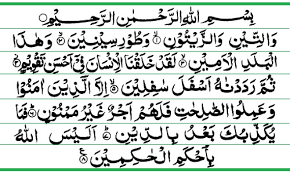 بِسْمِ اللهِ الرَّحْمٰنِ الرَّحِيْمِ
وَالتِّيْنِ وَالزَّيْتُوْنِ ۙ وَطُوْرِ سِيْنِيْنَ ۙ وَهٰذَا
الْبَلَدِ الْاَمِيْنِ ۙ لَقَدْ خَلَقْنَا الْاِنْسَانَ فِيْ اَحْسَنِ تَقْوِيْمٍ ۫
ثُمَّ رَدَدْنٰهُ اَسْفَلَ سٰفِلِيْنَ ۙ اِلَّا الَّذِيْنَ اٰمَنُوْا
وَعَمِلُوا الصّٰلِحٰتِ فَلَهُمْ اَجْرٌ غَيْرُ مَمْنُوْنٍ ؕ فَمَا
يُكَذِّبُكَ بَعْدُ بِالدِّيْنِ ؕ اَلَيْسَ اللهُ
بِاَحْكَمِ الْحٰكِمِيْنَ